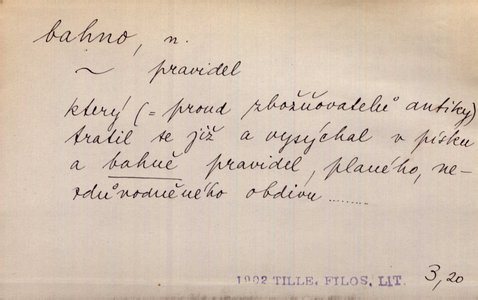 bahno, n.
~ pravidel
který (= proud zbožňovatelů antiky)
tratil se již a vysýchal v písku
a bahně pravidel, planého, ne-
zdůvodněného obdivu ........
1902 TILLE, FILOS. LIT. 3,20